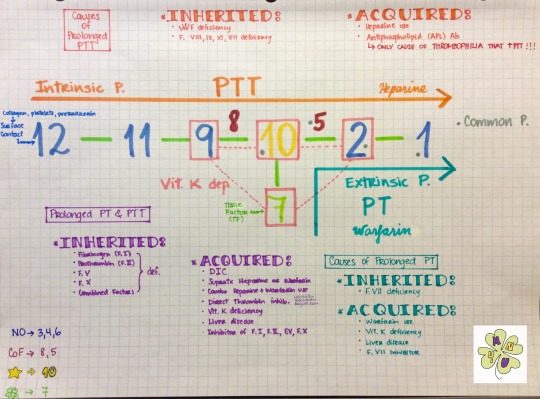 Causes of
Prolonged
PTT
* INHERITED:
• VWF deficiency
• F. VIII, IX, XI, XII deficiency
* ACQUIRED:
• Heparine use
• Antiphospholipid (APL) Ab
↳ ONLY CAUSE OF THROMBOPHILIA that ↑PTT!!!
Intrinsic P. PTT Heparine
Collagen, platelets,
Surface
Contact
12 — 11 — 9 8 10 5 2 1
• Common P.
Vit. K dep.
7
Tissue
Factor
(TF)
Extrinsic P.
PT
Warfarin
Prolonged PT & PTT
* INHERITED:
• Fibrinogen (F.I)
• Prothrombin (F.II)
• F. V
• F. X
• Combined Factors
def.
* ACQUIRED:
• DIC
• Suprate Heparine or Warfarin
• Combo Heparine + Warfarin use
• Direct Thrombin inhib.
• Vit. K deficiency
• Liver disease
• Inhibitor of F. I, F.II, FV, FX
Causes of Prolonged PT
* INHERITED:
• F.VII deficiency
* ACQUIRED:
• Warfarin use
• Vit. K deficiency
• Liver disease
• F. VII inhibitor
NO → 3,4,6
CoF → 8,5
→ 10
→ 7